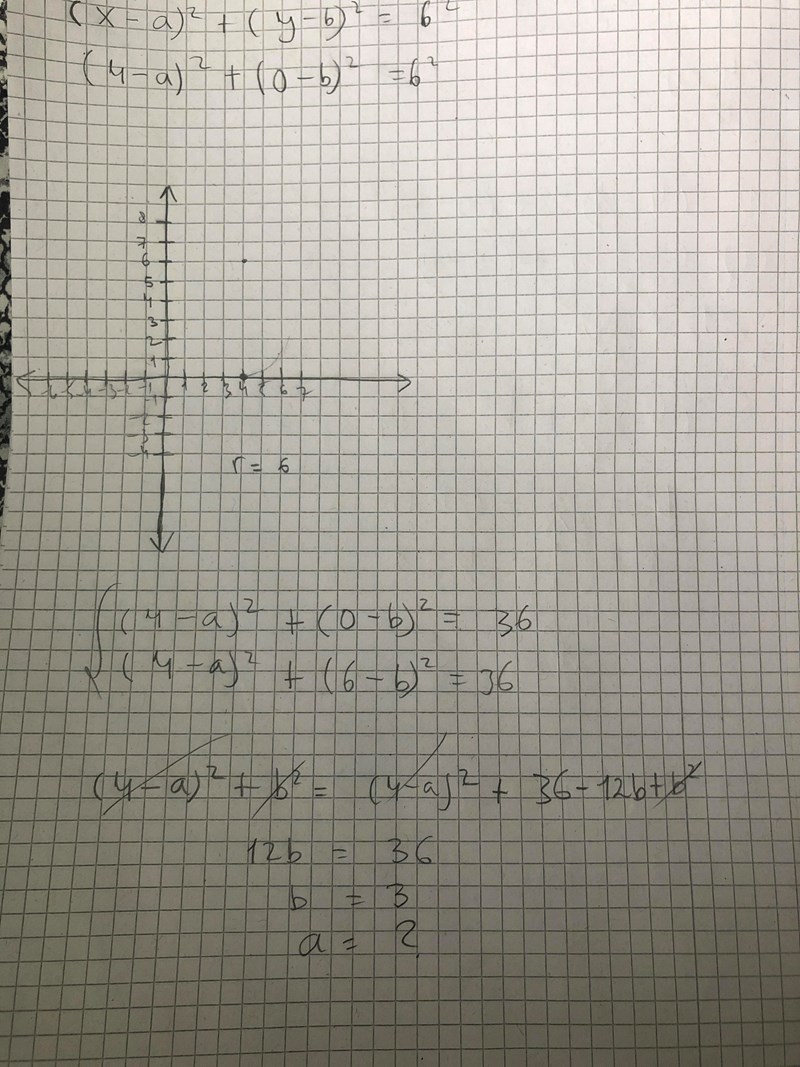 (x-a)² + (y-b)² = 6²
(4-a)² + (0-b)² = 6²
8
7
6
5
4
3
2
1
1 2 3 4 5 6 7
r = 6
(4-a)² + (0-b)² = 36
(4-a)² + (6-b)² = 36
(4-a)² + b² = (4-a)² + 36-12b+b²
12b = 36
b = 3
a = ?